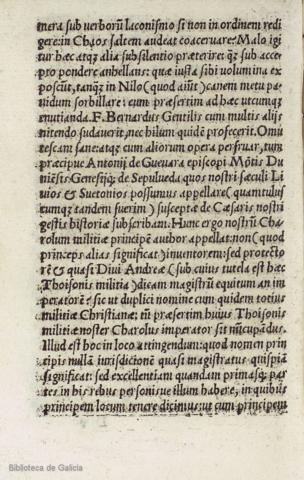 nera sub verborũ laconismo si non in ordinem redi
gere: in Chaos saltem audeat coacervare? Malo igi
tur hæc atqȝ alia subsilentio præterire: qȝ sub acce
pto pondere anhellans: quæ iusta sibi volumina ex
poscũt, tanqȝ in Nilo (quod aiũt) canem metu pa
uidum sorbillare: cum præsertim ad hæc utcumqȝ
enutianda. F. Bernardus Gentilis cum multis alijs
nitendo sudaverit, nec hilum quidẽ profecerit. Omi
tescam sane: atqȝ cum aliorum opera perfruar, tum
præcipue Antonij de Gueuara episcopi Mõtis Du
niẽsis: Genesijqȝ de Sepulveda quos nostri sæculi Li
vios & Suetonios possumus appellare (quantulus
cumqȝ tandem fuerim) susceptæ de Cæsaris nostri
gestis historiæ subscribam. Hunc ergo nostrũ Cha
rolum militiæ principẽ author appellat: non (quod
princeps alias significat) inventorem: sed protecto
rẽ & quasi Divi Andreæ (sub cuius tutela est hæc
Thoisonis militia) dicam magistrũ equitum an im
peratorẽ? sic ut duplici nomine cum quidem totius
militiæ Christianæ: tũ præsertim huius Thoisonis
militiæ noster Charolus imperator sit nũcupãdus.
Illud est hoc in loco attingendum: quod nomen prin
cipis nullã iurisdictionẽ quasi magistratus quispiã
significat: sed excellentiam quandam primasqȝ par
tes in his rebus personisve illum habere, in quibus
principem locum tenere dicimus: ut cum principem
Biblioteca de Galicia